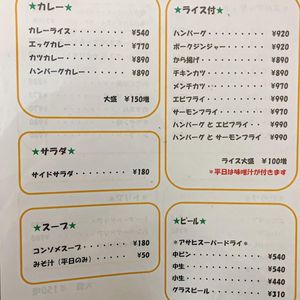 ★カレー★
カレーライス ・・・・・ ¥540
エッグカレー ・・・・・ ¥770
カツカレー ・・・・・ ¥890
ハンバーグカレー ・・・・ ¥890
大盛 ¥150増
★サラダ★
サイドサラダ ・・・・・ ¥180
★スープ★
コンソメスープ ・・・・・ ¥180
みそ汁（平日のみ） ・・・・ ¥50
★ライス付★
ハンバーグ ・・・・・ ¥920
ポークジンジャー ・・・・ ¥920
から揚げ ・・・・・ ¥890
チキンカツ ・・・・・ ¥890
メンチカツ ・・・・・ ¥890
エビフライ ・・・・・ ¥990
サーモンフライ ・・・・ ¥970
ハンバーグ と エビフライ ・・ ¥990
ハンバーグ と サーモンフライ ・ ¥990
ライス大盛 ¥100増
*平日は味噌汁が付きます
★ビール★
*アサヒスーパードライ*
中ビン ・・・・・ ¥540
中生 ・・・・・ ¥540
小生 ・・・・・ ¥440
グラスビール ・・・・・ ¥310